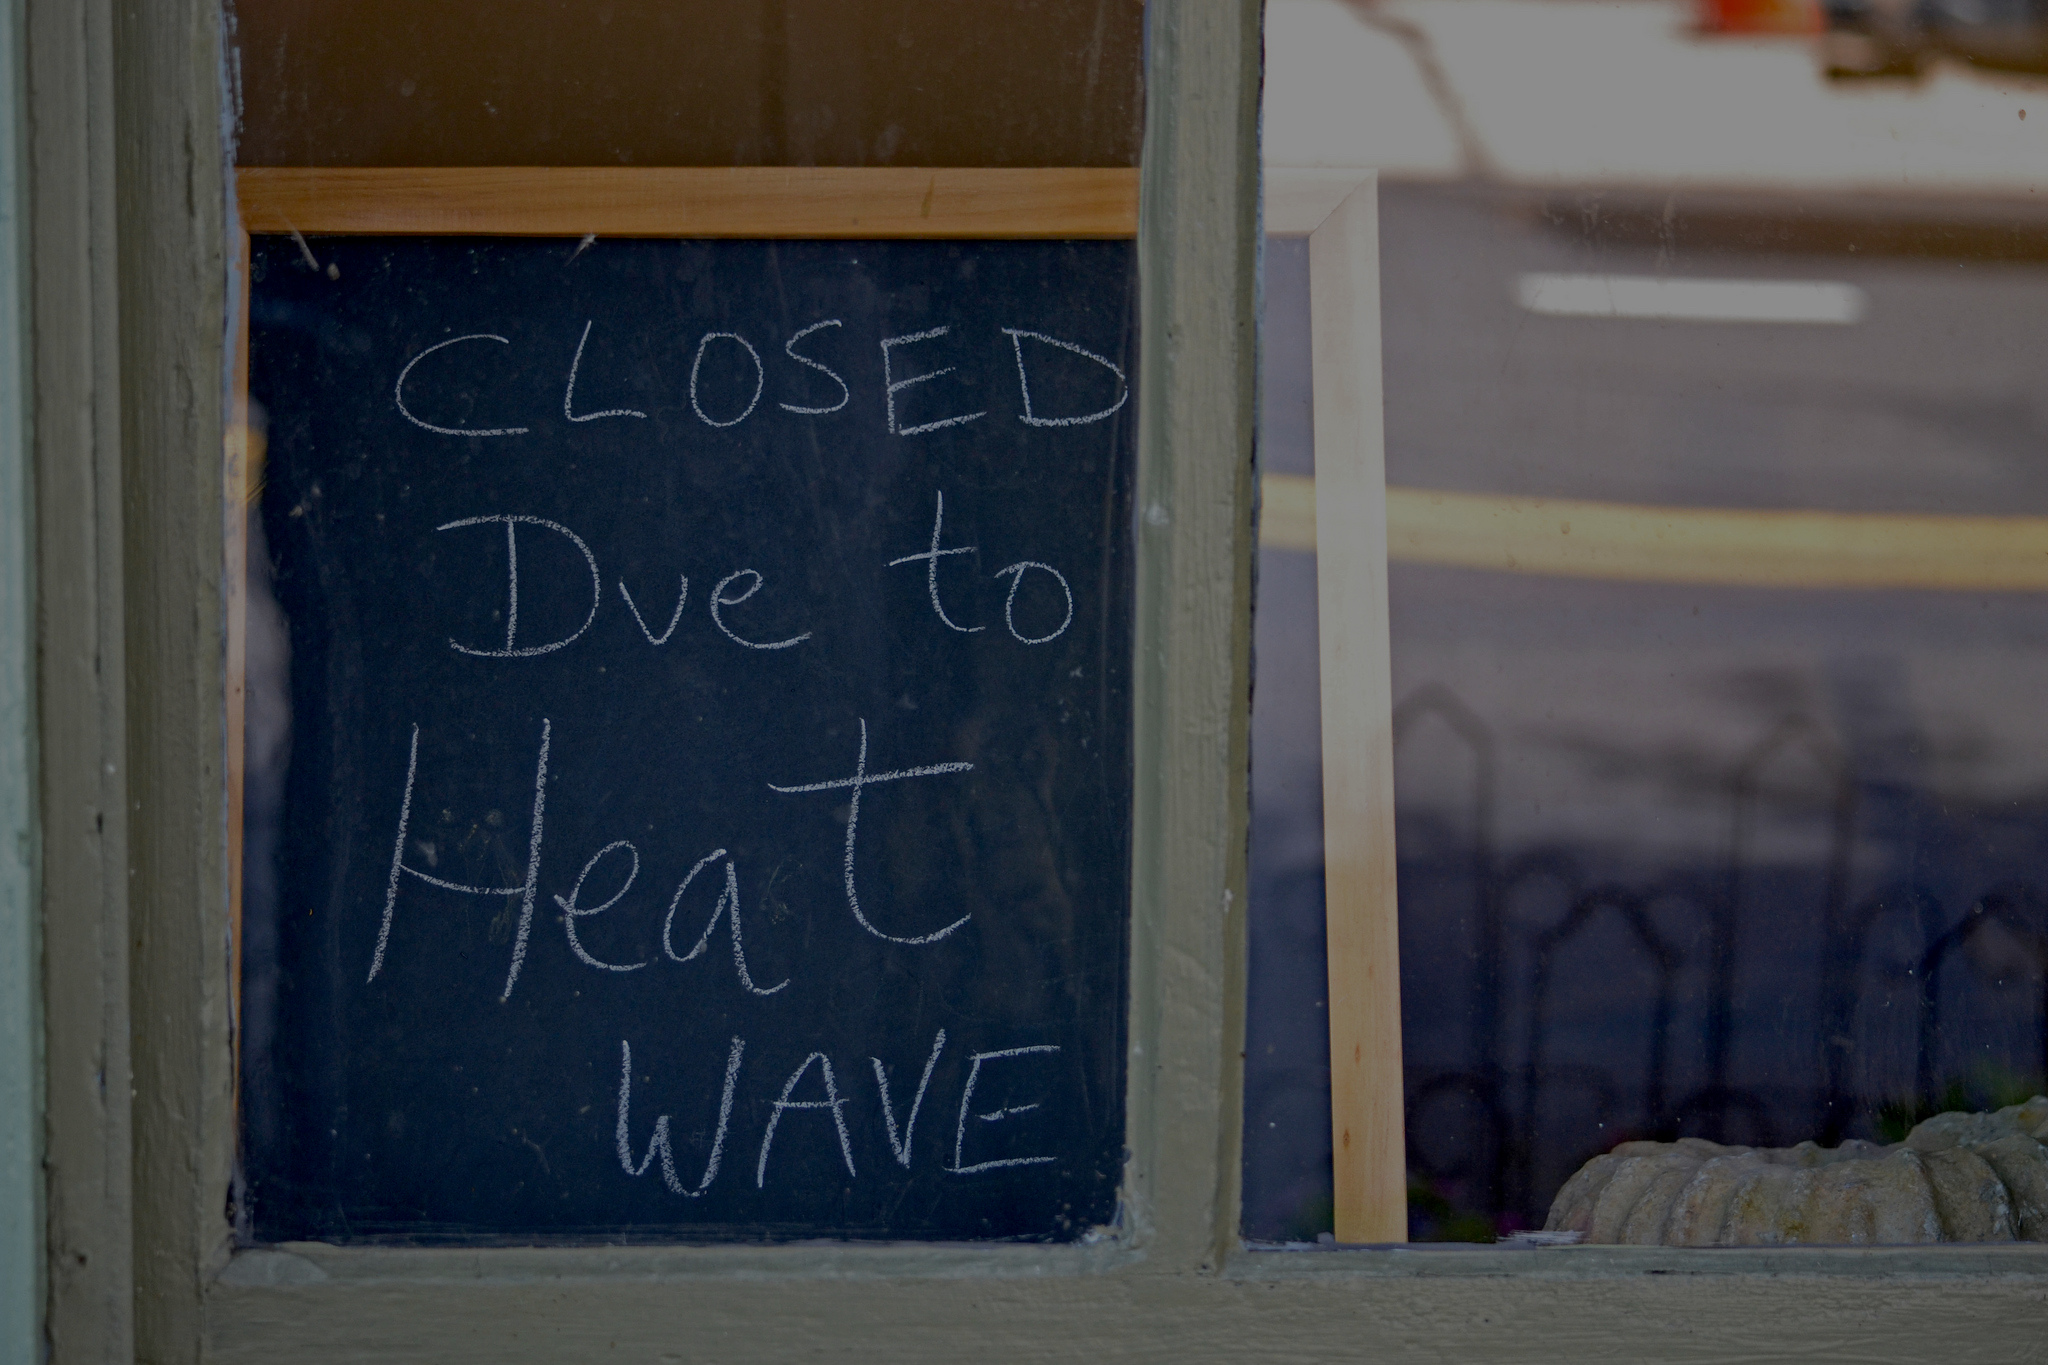 CLOSED
Due to
Heat
WAVE